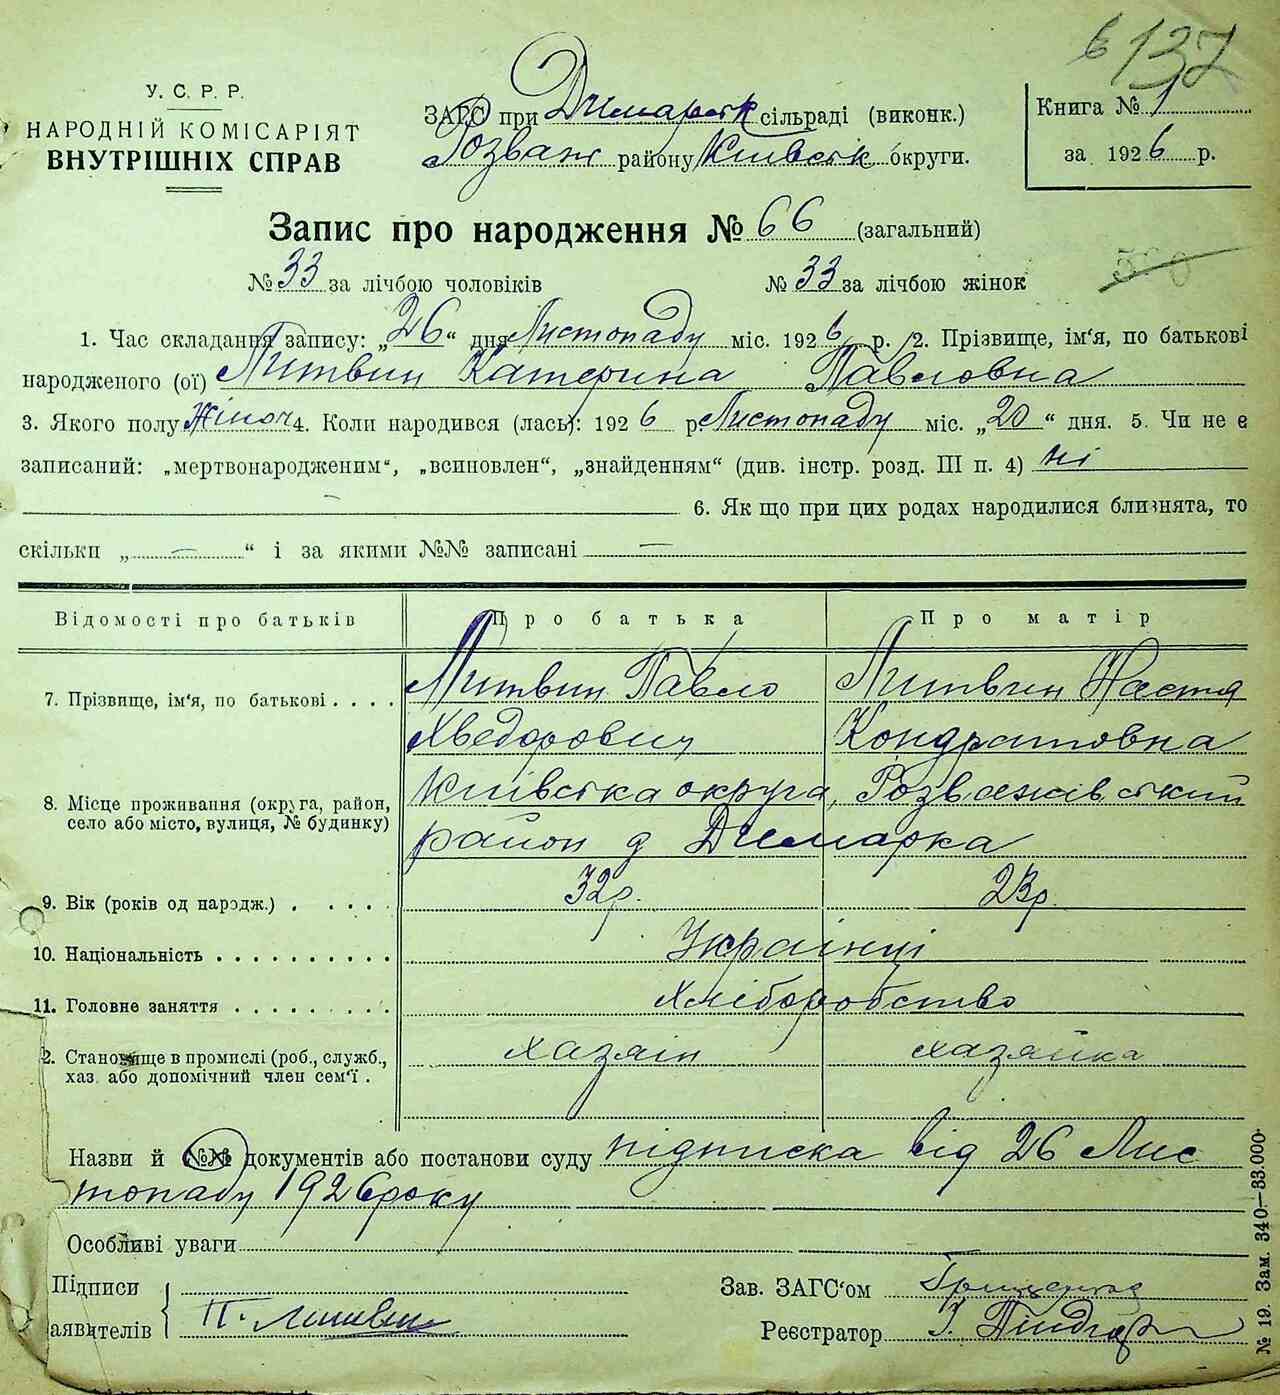 6 137
У. С. Р. Р.
НАРОДНІЙ КОМІСАРІЯТ
ВНУТРІШНІХ СПРАВ
ЗАГС при Димарськ сільраді (виконк.)
Розваж району Київськ округи.
Книга № 1
за 1926 р.
Запис про народження № 66 (загальний)
№ 33 за лічбою чоловіків № 33 за лічбою жінок
1. Час складання запису: „26“ дня Листопаду міс. 1926 р. 2. Прізвище, ім'я, по батькові
народженого (ої) Литвин Катерина Павловна
3. Якого полу Жіноч 4. Коли народився (лась): 1926 р. Листопаду міс. „20“ дня. 5. Чи не є
записаний: „мертвонародженим“, „всиновлен“, „знайденням“ (див. інстр. розд. III п. 4) ні
6. Як що при цих родах народилися близнята, то
скільки „ — “ і за якими №№ записані —
Відомості про батьків Про батька Про матір
7. Прізвище, ім'я, по батькові . . . . Литвин Павло Литвин Настя
Хведорович Кондратовна
8. Місце проживання (округа, район, Київська округа, Розважівський
село або місто, вулиця, № будинку) район д Димарка
9. Вік (років од народж.) . . . . . 32р. 23р.
10. Національність . . . . . . . . . . Українці
11. Головне заняття . . . . . . . . . Хліборобство
2. Становище в промислі (роб., служб., хазяін хазяйка
хаз. або допомічний член сем'ї .
Назви й №№ документів або постанови суду підписка від 26 Лис
топаду 1926 року
Особливі уваги
Підписи Зав. ЗАГС'ом
аявителів П. Литвин Реєстратор І.
№ 19. Зам. 340—33.000.